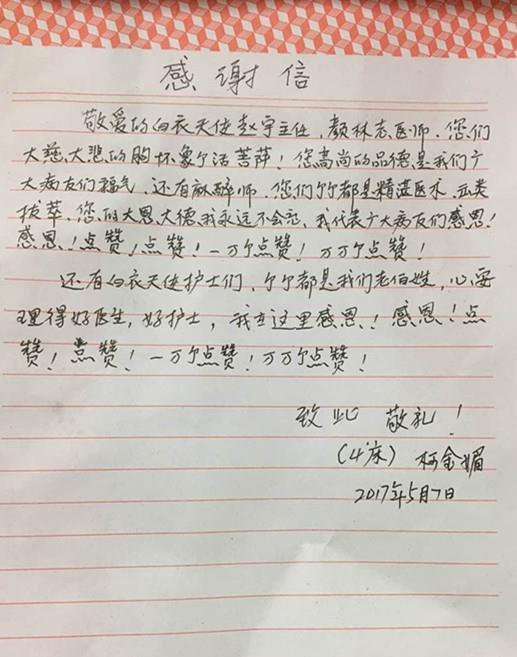 感谢信
敬爱的白衣天使赵宇主任,颜林志医师,您们
大慈、大悲的胸怀象个活菩萨!您高尚的品德是我们广
大病友们福气,还有麻醉师,您们个个都是精湛医术,出类
拔萃,您的大恩、大德我永远不会忘,我代表广大病友们感恩!
感恩!点赞!点赞!一万个点赞!万万个点赞!
还有白衣天使护士们,个个都是我们老百姓,心安
理得好医生,好护士,我在这里感恩!感恩!点
赞!点赞!一万个点赞!万万个点赞!
致此 敬礼!
(4床) 柯金媚
2017年5月7日